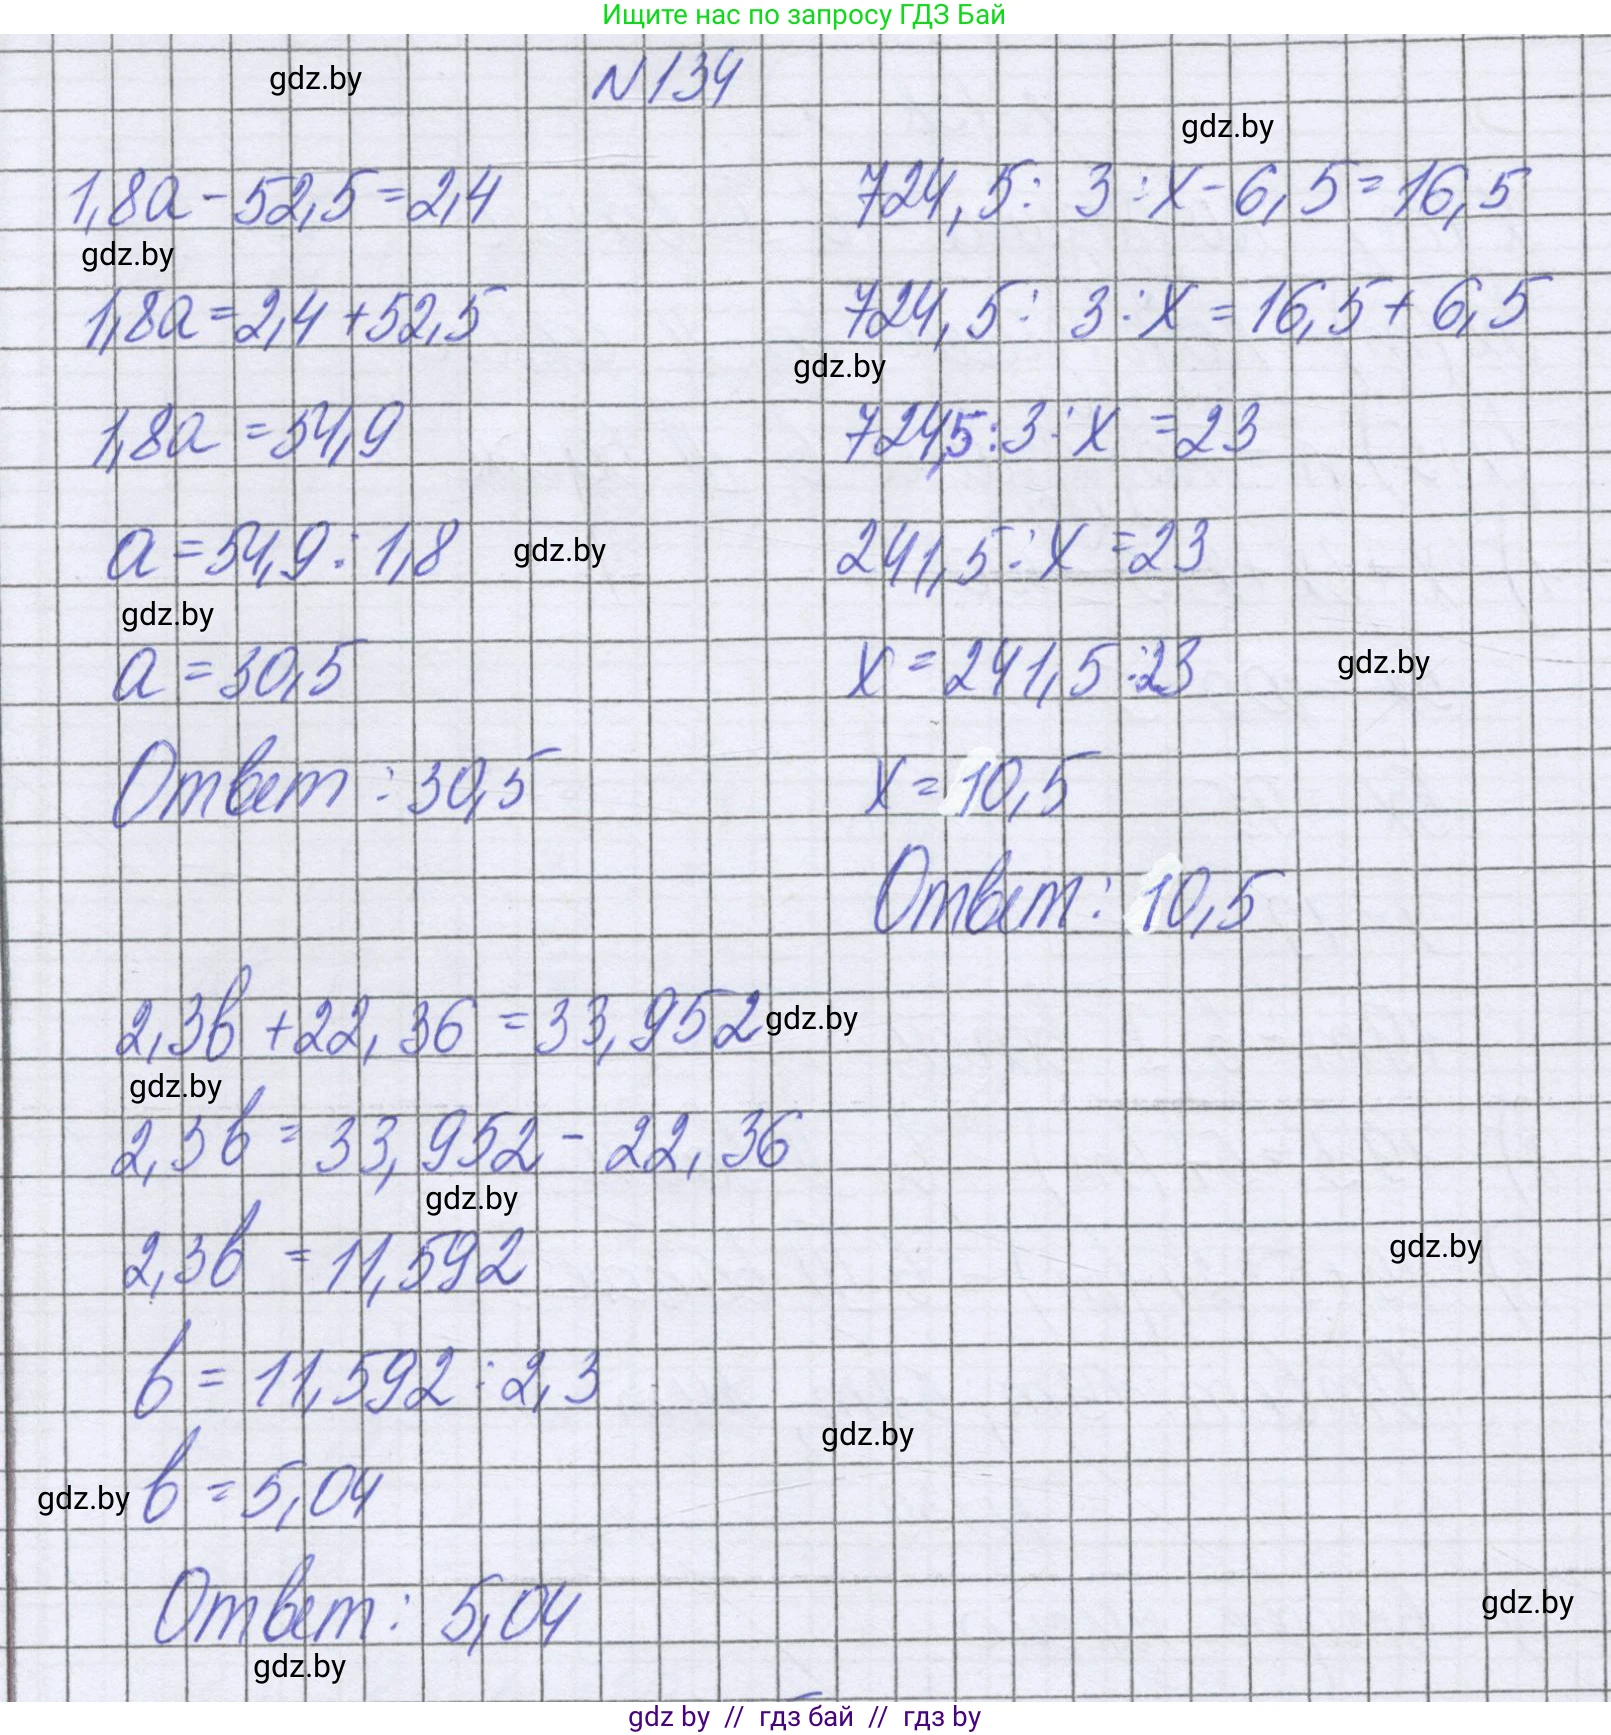 Ищите нас по запросу ГДЗ Бай
N 134
gdz.by
gdz.by
1,8a - 52,5 = 2,4
gdz.by
1,8a = 2,4 + 52,5
1,8a = 54,9
a = 54,9 : 1,8
gdz.by
gdz.by
a = 30,5
Ответ : 30,5
724,5 : 3 : x - 6,5 = 16,5
724,5 : 3 : x = 16,5 + 6,5
gdz.by
724,5 : 3 : x = 23
241,5 : x = 23
x = 241,5 : 23
gdz.by
x = 10,5
Ответ : 10,5
2,3b + 22,36 = 33,952
gdz.by
gdz.by
2,3b = 33,952 - 22,36
gdz.by
2,3b = 11,592
gdz.by
b = 11,592 : 2,3
gdz.by
gdz.by
b = 5,04
Ответ : 5,04
gdz.by
gdz.by
gdz by // гдз бай // гдз by